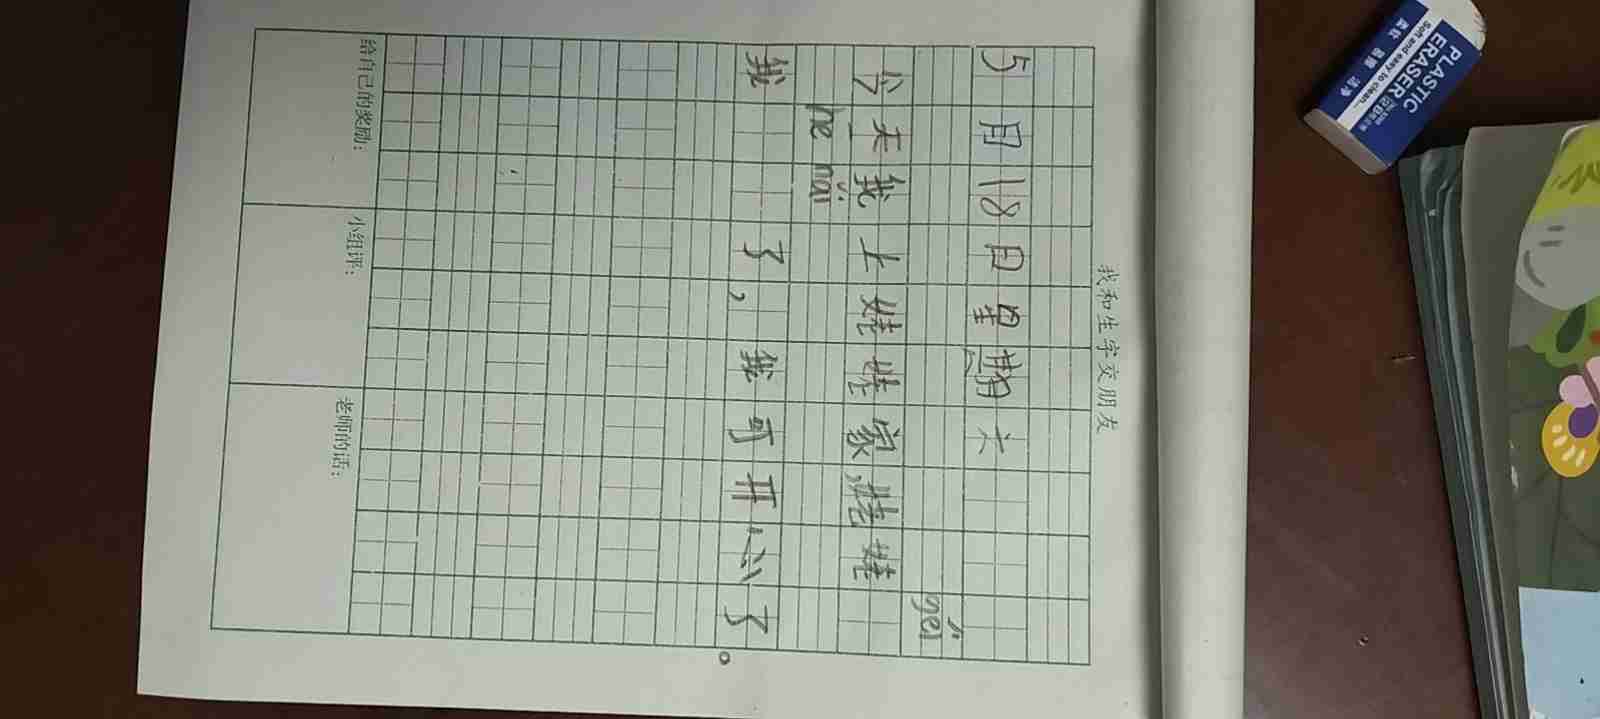 我和生字交朋友
5月18日星期六
gěi
今天我上娃娃家,娃娃
he nǎi
我 了,我可开心了。
给自己的奖励:
小组评:
老师的话:
PLASTIC
ERASER
Soft and easy to clean...